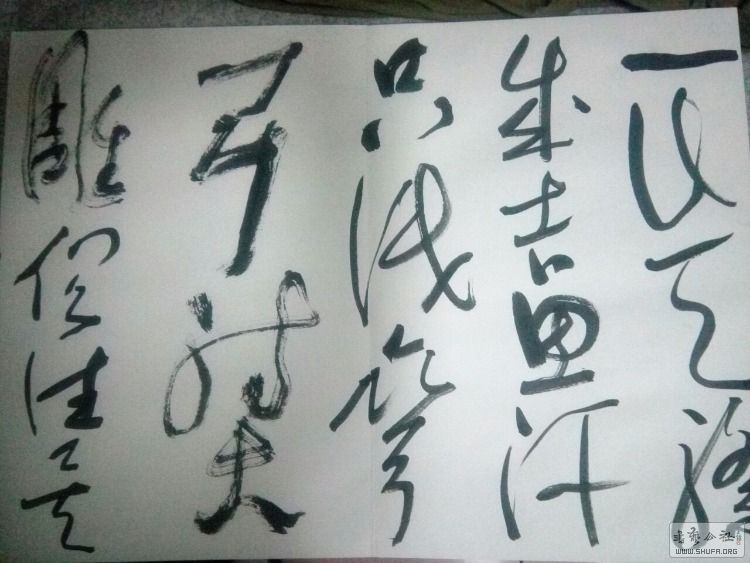 一代天骄
成吉思汗
只识弯
弓射大
雕俱往矣
书艺公社
WWW.SHUFA.ORG